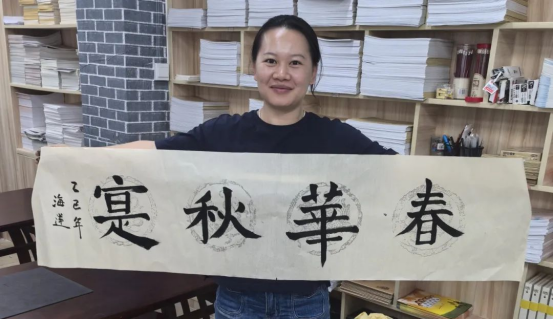 春華秋寔
乙巳年
海蓮